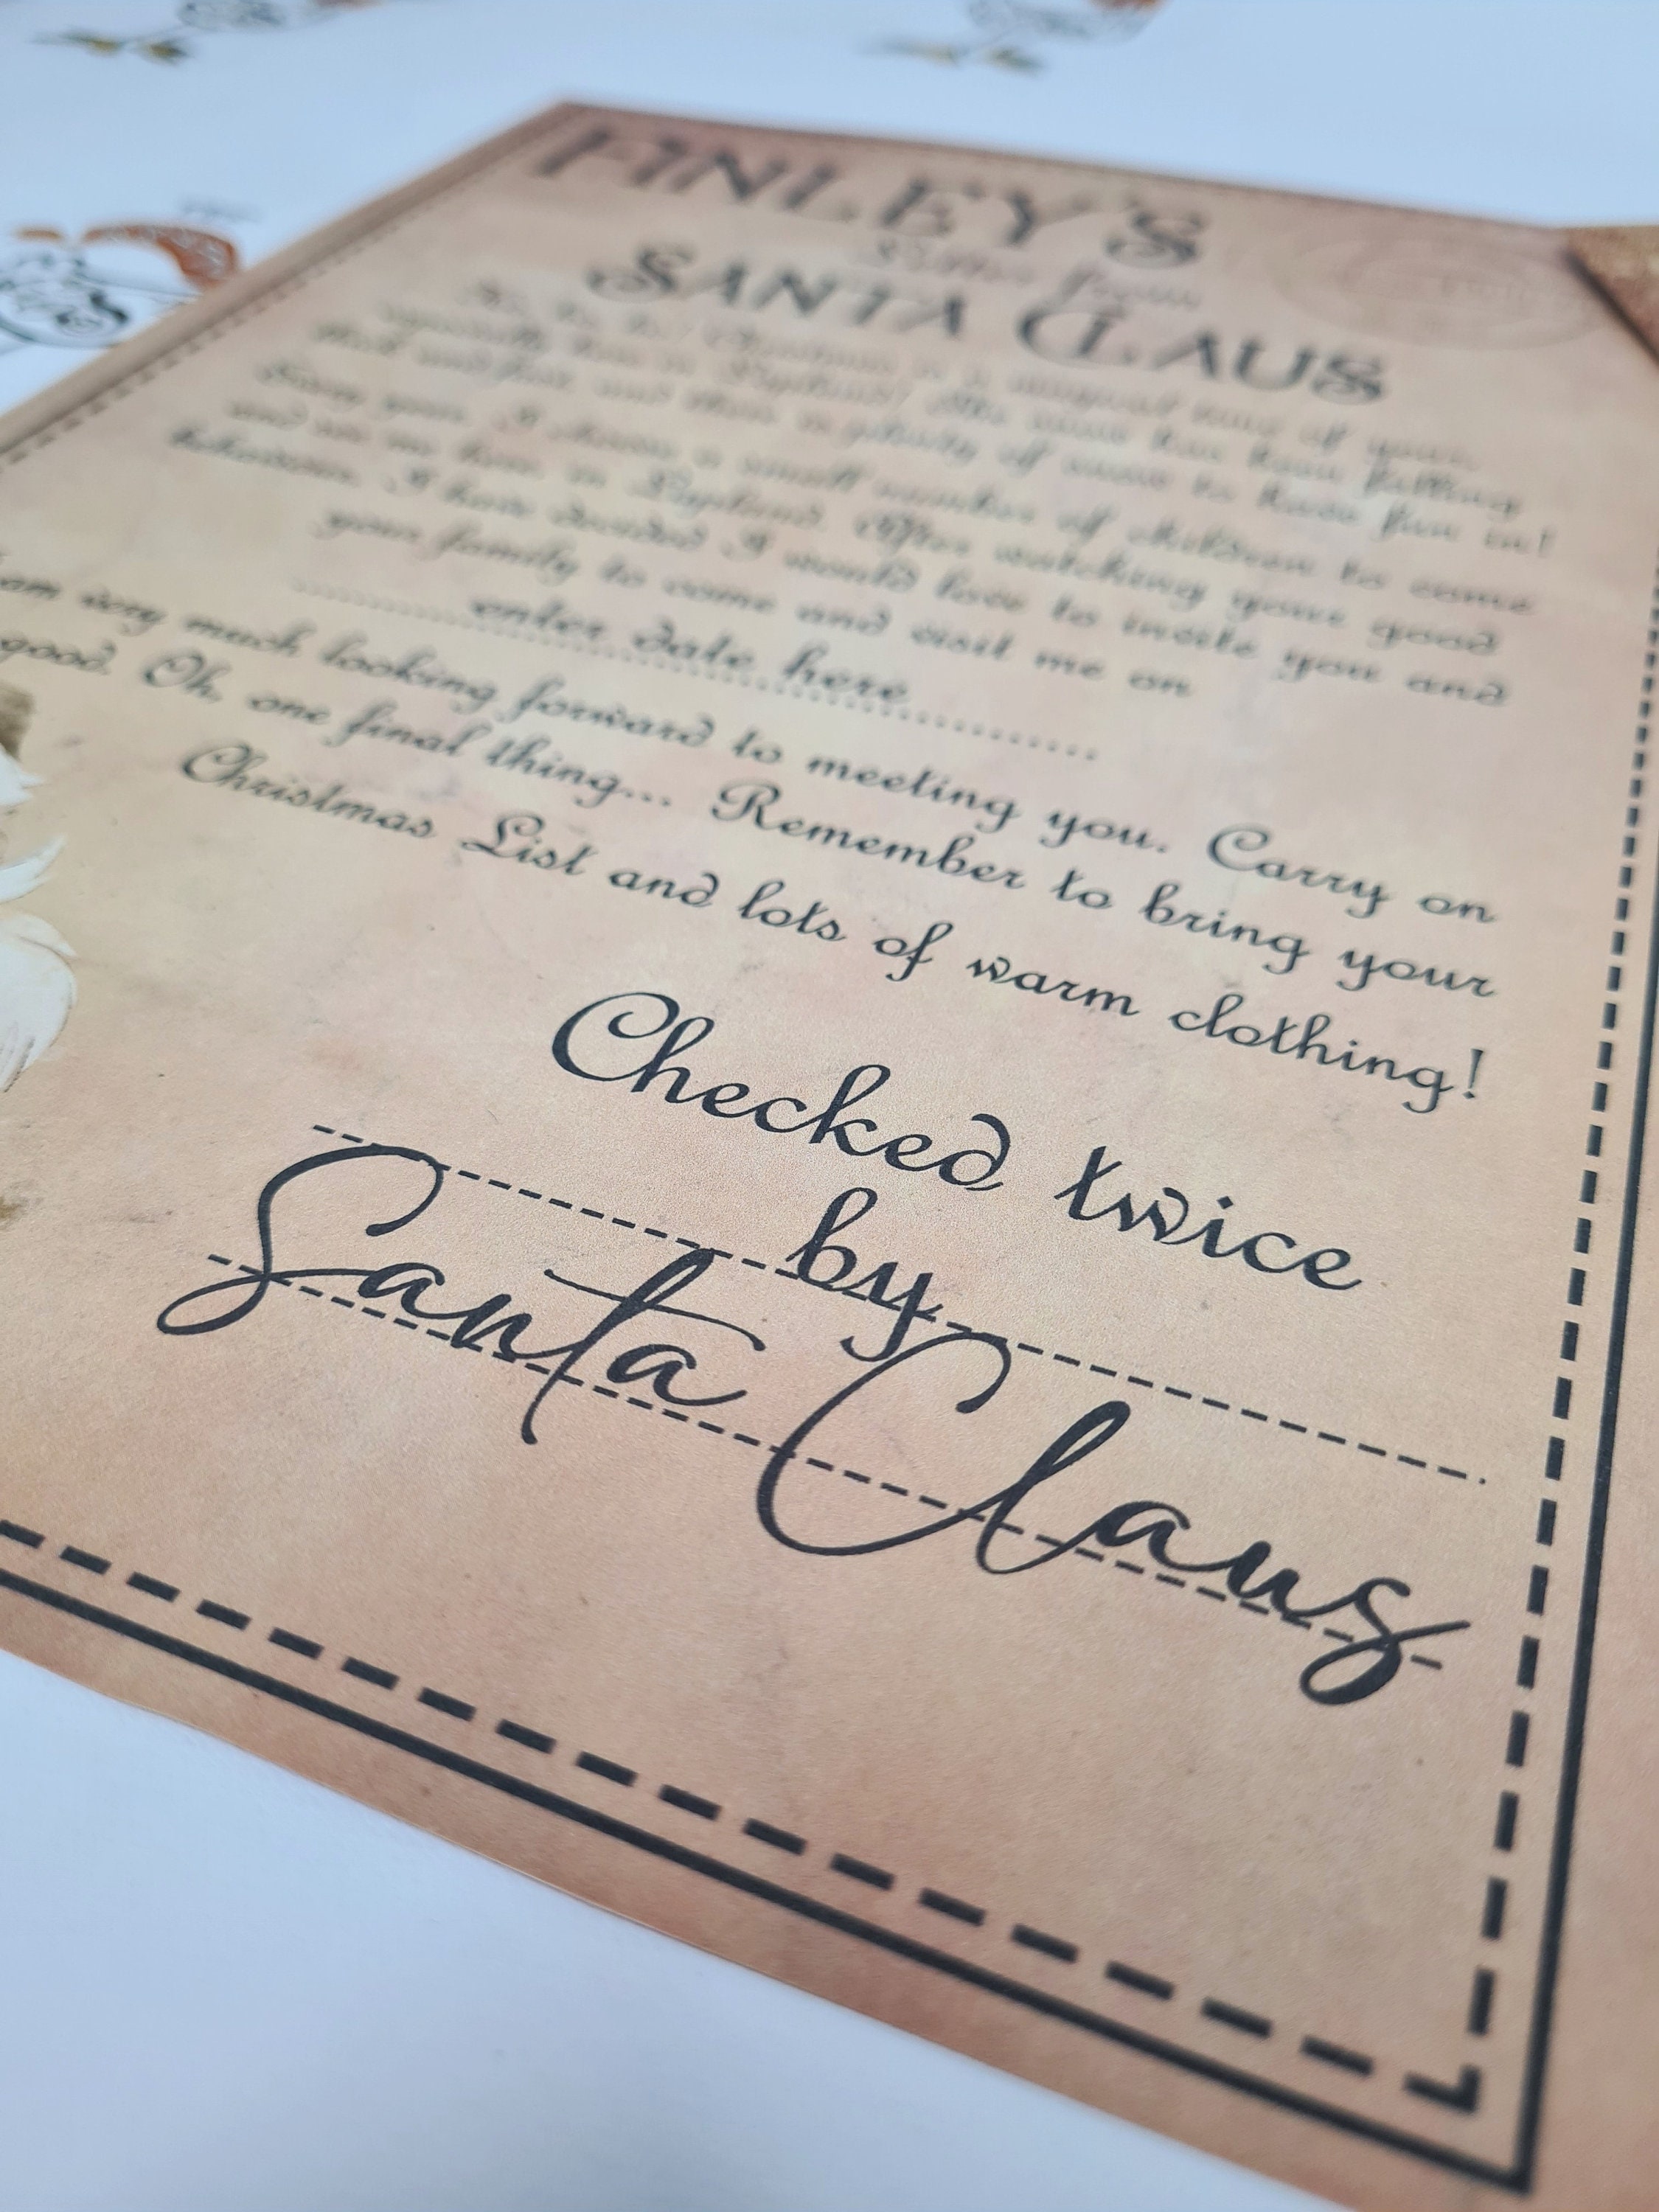 FINLEY'S
Letter from
SANTA CLAUS
Ho, Ho, Ho! Christmas is a magical time of year,
especially here in Lapland! The snow has been falling
thick and fast and there is plenty of snow to have fun in!
Every year, I choose a small number of children to come
and see me here in Lapland. After watching your good
behaviour, I have decided I would love to invite you and
your family to come and visit me on
enter date here
am very much looking forward to meeting you. Carry on
good. Oh, one final thing... Remember to bring your
Christmas List and lots of warm clothing!
Checked twice
by
Santa Claus